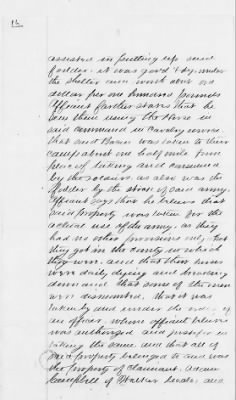 assisted in putting up said
fodder. it was good & dry under
the shelter and worth about one
dollar per one hundred pounds
Affiant further states that he
saw them using the Horse in
said command in Cavalry service
that said Bacon was taken to their
camp about one half mile from
place of taking and consumed
by the soldiers, as also was the
fodder by the stock of said army.
Affiant says that he believes that
said property was taken for the
actual use of the army, as they
had no other provisions only what
they got in the County in which
they were, and that their horses
were daily dying and
that some of the men
were dismounted, that it was
taken by and under the
an officer, whom affiant believes
was authorized and justified in
taking the same, and that all of
said property belonged to and was
the property of claimant, Adam
Campbell of Walker County, and